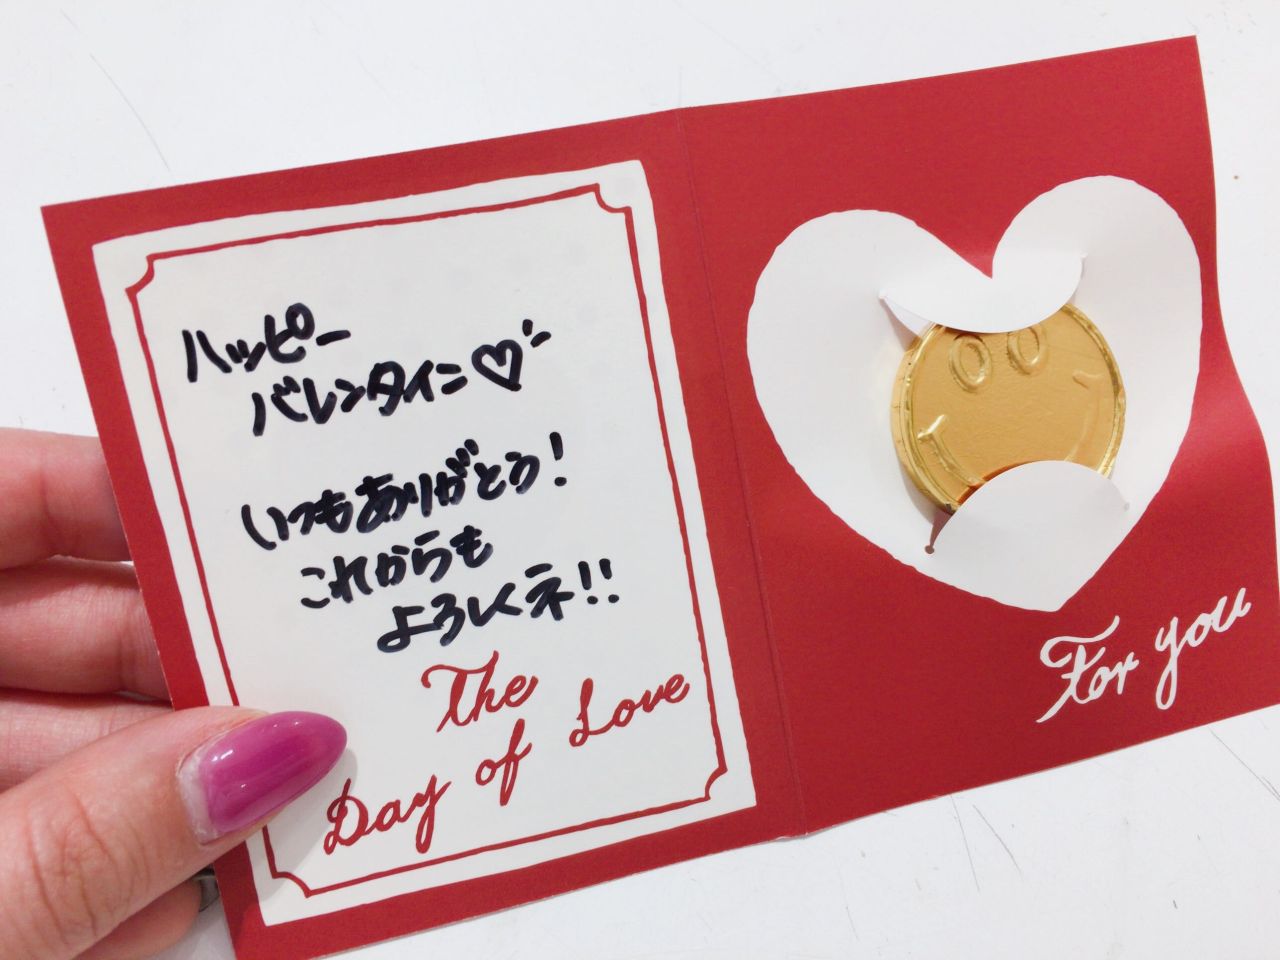 ハッピー
バレンタイン♡
いつもありがとう!
これからも
よろしくネ!!
The
Day of Love
For you